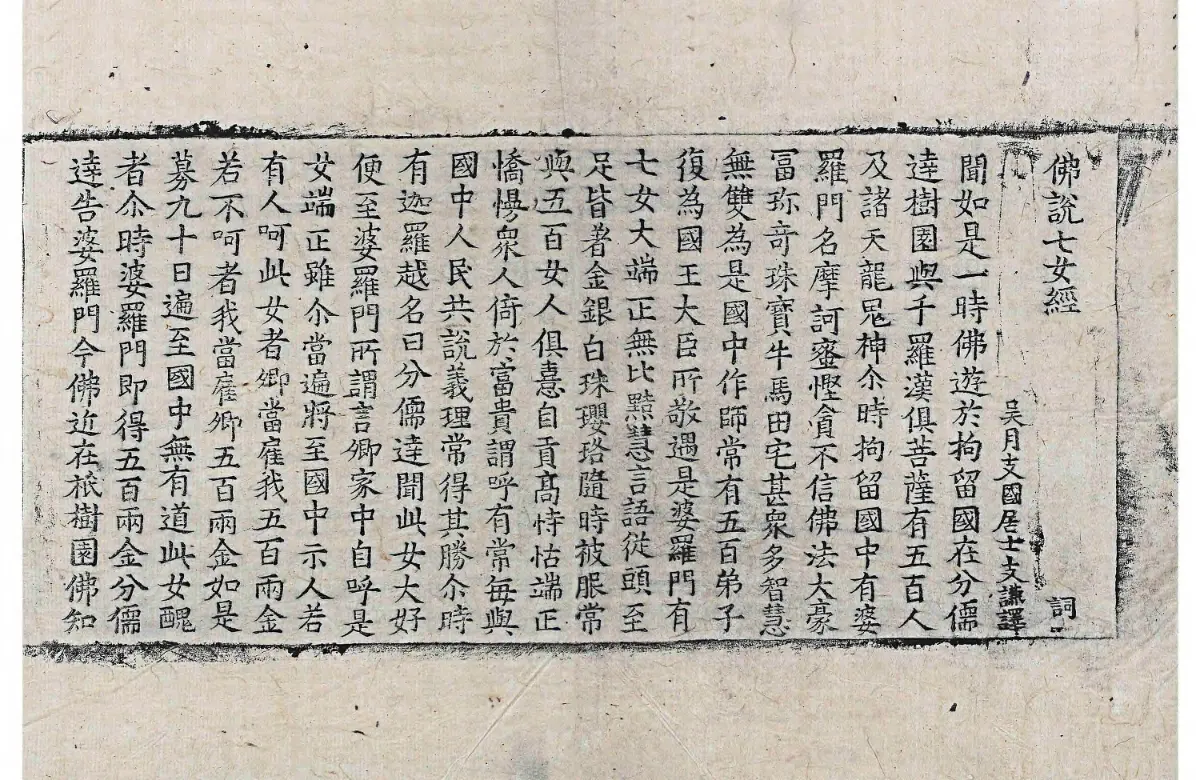 佛説七女經　詞
吳月支國居士支謙譯
聞如是一時佛遊於拘留國在分儒
達樹園與千羅漢俱菩薩有五百人
及諸天龍鬼神尒時拘留國中有婆
羅門名摩訶蜜慳貪不信佛法大豪
冨珎竒珠寶牛馬田宅甚衆多智慧
無雙為是國中作師常有五百弟子
復為國王大臣所敬遇是婆羅門有
七女大端正無比黠慧言語從頭至
足皆著金銀白珠瓔珞隨時被服常
與五百女人俱憙自貢髙恃怙端正
憍慢衆人倚於富貴謂呼有常每與
國中人民共説義理常得其勝尒時
有迦羅越名曰分儒達聞此女大好
便至婆羅門所謂言卿家中自呼是
女端正雖尒當遍將至國中示人若
有人呵此女者卿當雇我五百兩金
若不呵者我當雇卿五百兩金如是
募九十日遍至國中無有道此女醜
者尒時婆羅門即得五百兩金分儒
達告婆羅門今佛近在祇樹園佛知